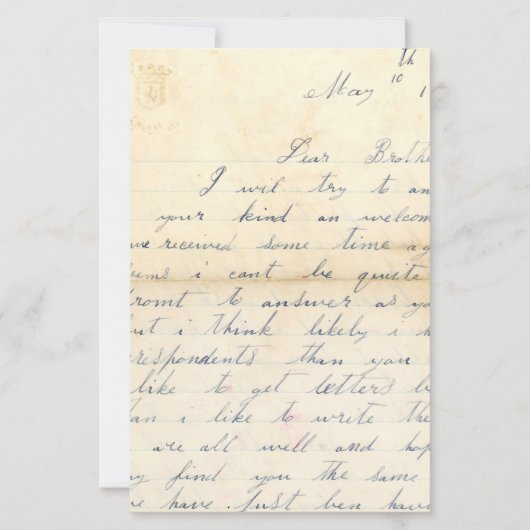 th
May 10 1
Dear Brothe
I wil try to an
your kind an welcom
we received some time ag
eems i cant be quite
romt to answer as yo
but i think likely i h
respondents than you
like to get letters b
an i like to write the
are all well and hop
ay find you the same
we have Just ben hav